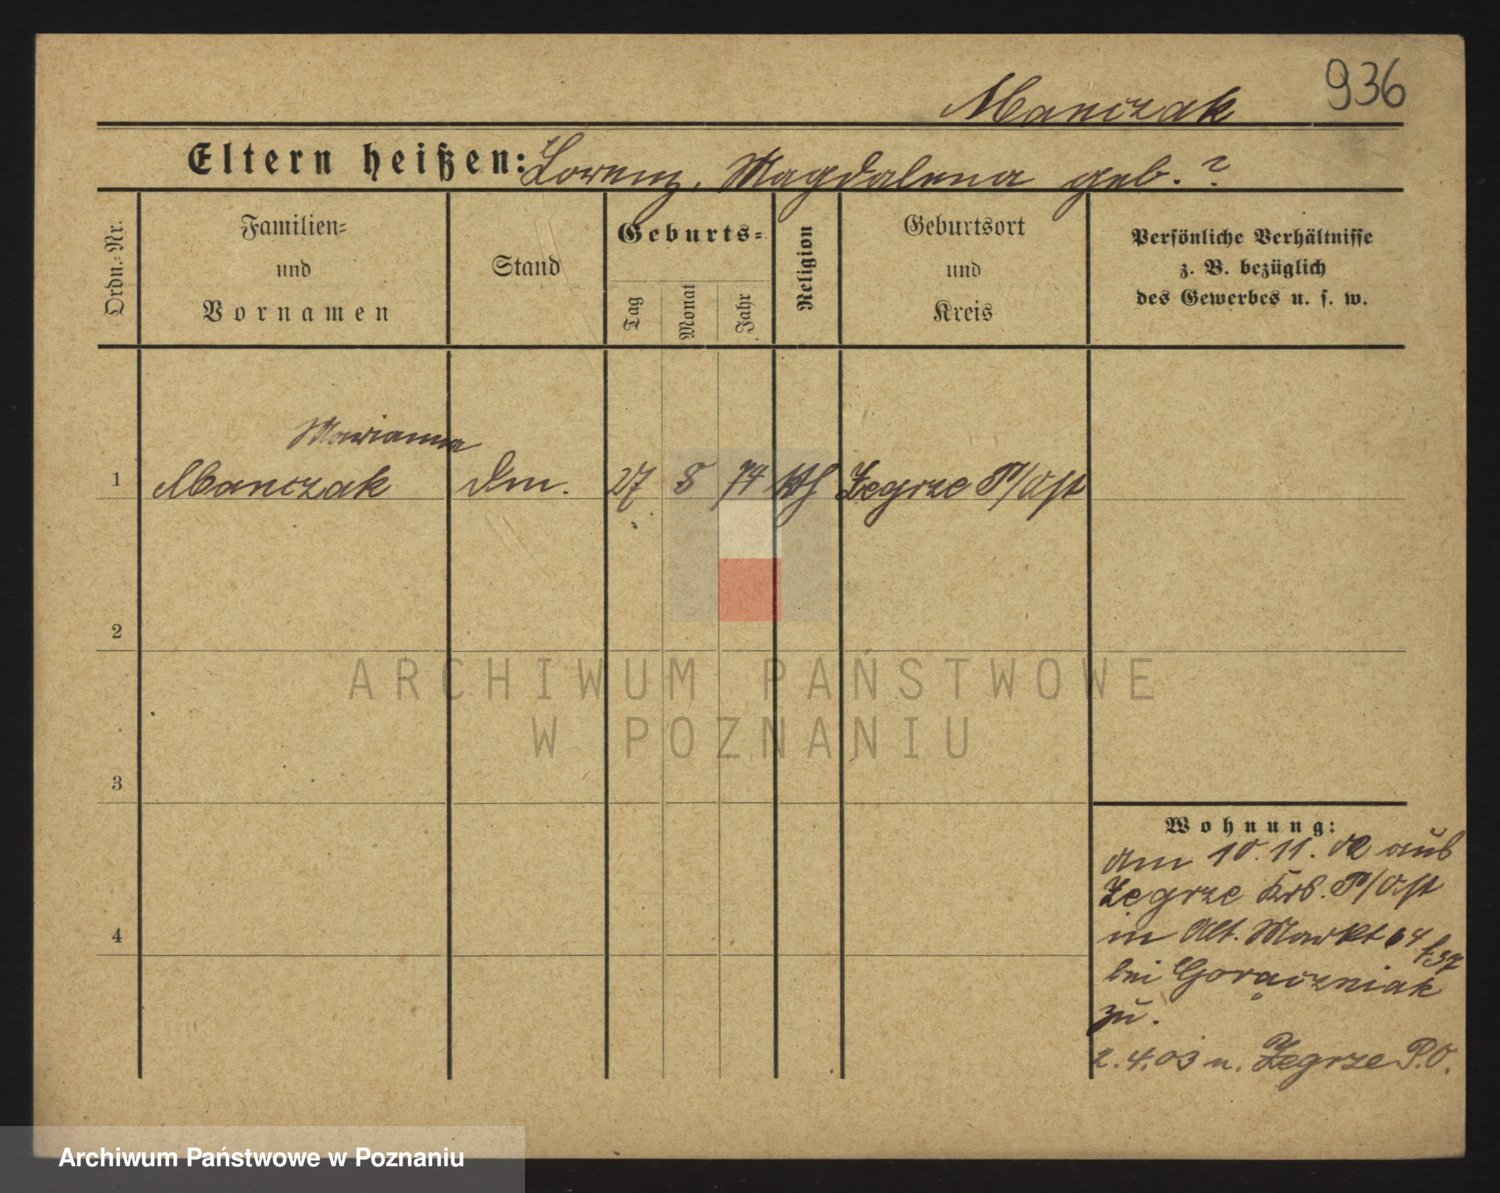 936
Manczak
Eltern heißen: Lorenz, Magdalena geb. ?
Ordn.-Nr.
Familien-
und
Vornamen
Stand
Geburts-
Tag
Monat
Jahr
Religion
Geburtsort
und
Kreis
Persönliche Verhältnisse
z. B. bezüglich
des Gewerbes u. s. w.
Marianna
1 Manczak Dm. 27 8 74 kth Zegrze P/Ost
2
3
4
Wohnung:
Am 10.11.02 aus
Zegrze Krs. P/Ost
in Alt. Markt 64
bei Gorączniak
zu.
2.4.03 n. Zegrze P.O.
ARCHIWUM PAŃSTWOWE
W POZNANIU
Archiwum Państwowe w Poznaniu